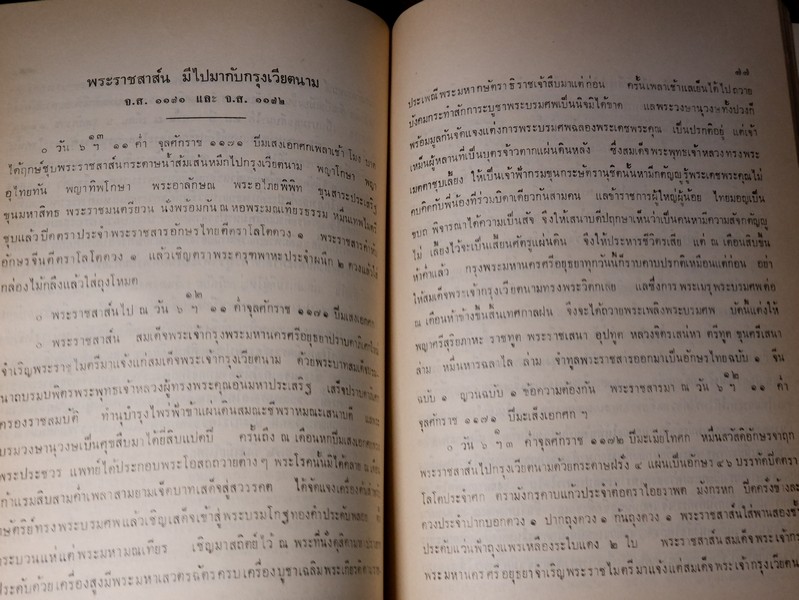 พระราชสาส์น มีไปมากับกรุงเวียตนาม
จ.ส. ๑๑๗๑ และ จ.ส. ๑๑๗๒
๐ วัน ๖ ฯ ๑๑ ค่ำ จุลศักราช ๑๑๗๑ ปีมเสงเอกศกเพลาเช้า โมง
ได้ฤกษ์ชุบพระราชสาส์นกระดาษน้ำส้มเส้นหมึกไปกรุงเวียตนาม พญาโกษา พญา
อุไทยทัน พญาทิพโกษา พระอาลักษณ พระอไภยพิพิท ขุนสาระประเสริฐ
ขุนมหาสิทธ พระราชมนตรียวน นั่งพร้อมกัน ณ หอพระมณเทียรธรรม หมื่นเทพไมตรี
ชุบแล้วปิดตราประจำพระราชสารอักษรไทยตีตราโลโตดวง ๑ พระราชสาส์นคำ
อักษรจีนตีตราโลโตดวง ๑ แล้วเชิญตราพระครุฑพาหะประจำผนึก ๒ ดวงแล้วใส่
กล่องไม้กลึงแล้วใส่ถุงโหมด
๐ พระราชสาส์นไป ณ วัน ๖ ฯ ๑๑ ค่ำ จุลศักราช ๑๑๗๑ ปีมเสงเอกศก
๐ พระราชสาส์น สมเด็จพระเจ้ากรุงพระมหานครศรีอยุธยาปราบดาภิเศกใหม่
จำเริญพระราชไมตรีมาแจ้งแก่สมเด็จพระเจ้ากรุงเวียตนาม ด้วยพระบาทสมเด็จพระ
นารถบรมบพิตรพระพุทธเจ้าหลวงผู้ทรงพระคุณอันมหาประเสริฐ เสร็จปราบดาภิเศก
ครองราชสมบัติ ทำนุบำรุงไพร่ฟ้าข้าแผ่นดินสมณะชีพราหมณะเสนาบดี แลพระ
บรมวงษานุวงษเป็นศุขสืบมาได้ยี่สิบแปดปี ครั้นถึง ณ เดือนหกปีมเสงเอกศก
พระประชวร แพทย์ได้ประกอบพระโอสถถวายต่าง ๆ พระโรคนั้นมิได้คลาย ณ เดือน
เก้าแรมสิบสามค่ำเพลาสามยามเจ็ดบาทเสด็จสู่สวรรคต ได้จัดแจงเครื่อง
กษัตริย์ทรงพระบรมศพแล้วเชิญเสด็จเข้าสู่พระบรมโกฐทองคำประดับพลอย
กระบวนแห่แต่พระมหามณเทียร เชิญมาสถิตย์ไว้ ณ พระที่นั่งดุสิตมหาปราสาท
ประดับด้วยเครื่องสูงมีพระมหาเสวตรฉัตรครบเครื่องบูชาเฉลิมพระเกียรติ
๗๗
ประเพณีพระมหากษัตราธิราชเจ้าสืบมาแต่ก่อน ครั้นเพลาเช้าแลเย็นได้ไปถวาย
บังคมกระทำสักการะบูชาพระบรมศพเป็นนิจมิได้ขาด แลพระวงษานุวงษทั้งปวงก็
พร้อมมูลกันจัดแจงแต่งการพระบรมศพฉลองพระเดชพระคุณ เป็นปรกติอยู่ แต่เจ้า
เหม็นผู้หลานที่เป็นบุตรจ้าวตากแผ่นดินหลัง ซึ่งสมเด็จพระพุทธเจ้าหลวงทรงพระ
เมตตาชุบเลี้ยง ให้เป็นเจ้าฟ้ากรมขุนกระษัตรานุชิตนั้นหามีกตัญญูรู้พระเดชพระคุณไม่
คบคิดกับพี่น้องที่ร่วมบิดาเดียวกันสามคน แลข้าราชการผู้ใหญ่ผู้น้อย ไทยมอญเป็น
ขบถ พิจารณาได้ความเป็นสัจ จึงให้เสนาบดีปฤกษาเห็นว่าเป็นคนหามีความสัจกตัญญู
ไม่ เลี้ยงไว้จะเป็นเสี้ยนศัตรูแผ่นดิน จึงให้ประหารชีวิตรเสีย แต่ ณ เดือนสิบขึ้น
ห้าค่ำแล้ว กรุงพระมหานครศรีอยุธยาทุกวันนี้ก็ราบคาบปรกติเหมือนแต่ก่อน อย่า
ให้สมเด็จพระเจ้ากรุงเวียตนามทรงพระวิตกเลย แลซึ่งการพระเมรุพระบรมศพต่อ
ณ เดือนห้าข้างขึ้นสิ้นเทศกาลฝน จึงจะได้ถวายพระเพลิงพระบรมศพ บัดนี้แต่งให้
พญาศรีสุริยภาหะ ราชทูต พระราชเสนา อุปทูต หลวงจิตรเสน่หา ตรีทูต ขุนศรีเสนา
ล่าม หมื่นหารฉลาไล ล่าม จำทูลพระราชสารออกมาเป็นอักษรไทยฉบับ ๑ จีน
ฉบับ ๑ ญวนฉบับ ๑ ข้อความต้องกัน พระราชสารมา ณ วัน ๖ ฯ ๑๑ ค่ำ
จุลศักราช ๑๑๗๑ ปีมะเสงเอกศก ฯ
๐ วัน ๖ ฯ ๓ ค่ำจุลศักราช ๑๑๗๒ ปีมะเมียโทศก หมื่นสวัสดิอักษรจาฤก
พระราชสาส์นไปกรุงเวียตนามด้วยกระดาษฝรั่ง ๔ แผ่นเป็นอักษร ๔๖ บรรทัดปิดตรา
โลโตประจำศก ตรามังกรคาบแก้วประจำต่อตราไอยราพต มังกรหก ปิดครั่งข้างละ
ดวงประจำปากบอกดวง ๑ ปากถุงดวง ๑ ก้นถุงดวง ๑ พระราชสาส์นใส่พานสองชั้น
ประดับแว่นฟ้าถุงแพรเหลืองระไบแดง ๒ ใบ พระราชสาส์น สมเด็จพระเจ้ากรุง
พระมหานครศรีอยุธยาจำเริญพระราชไมตรีมาแจ้งแต่สมเด็จพระเจ้ากรุงเวียตนาม